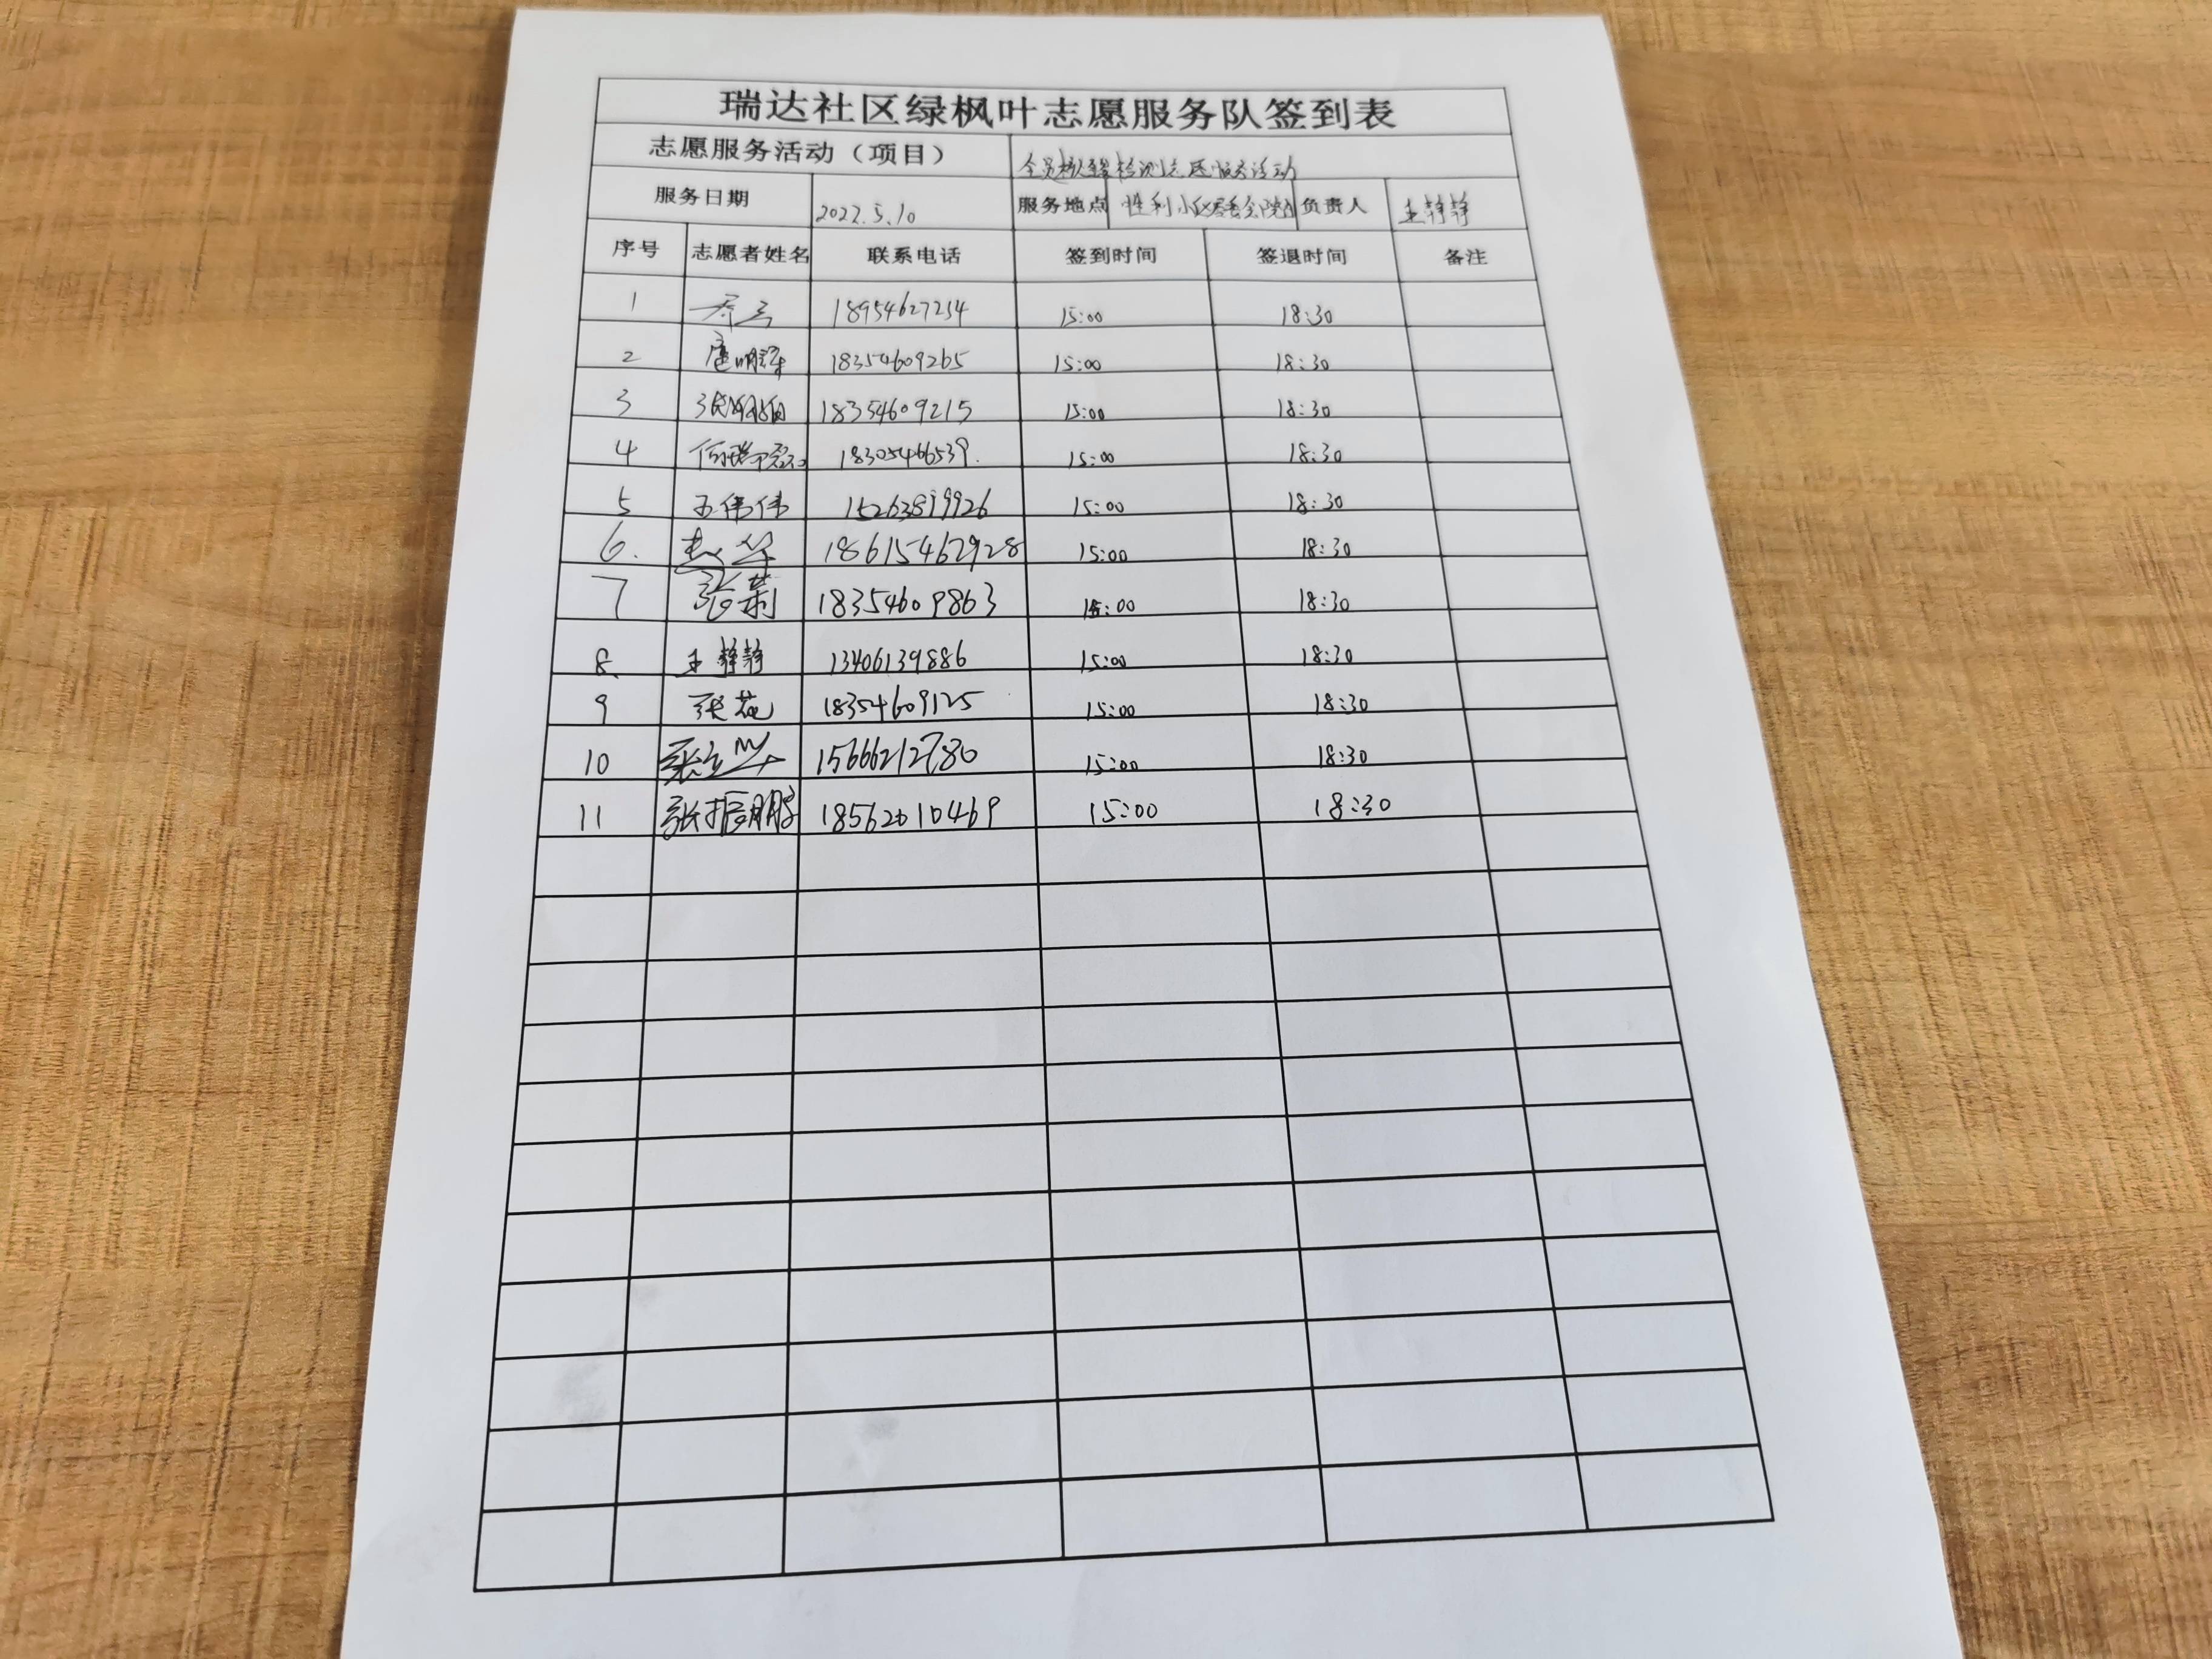 瑞达社区绿枫叶志愿服务队签到表
志愿服务活动（项目） 全员核酸检测志愿服务活动
服务日期 2022.5.10 服务地点 胜利小区居委会院内 负责人 王静静
序号 志愿者姓名 联系电话 签到时间 签退时间 备注
1 18954627254 15:00 18:30
2 18354609265 15:00 18:30
3 18354609215 15:00 18:30
4 18305466539. 15:00 18:30
5 王伟伟 15263819926 15:00 18:30
6. 18615462928 15:00 18:30
7 张荣 18354609863 15:00 18:30
8. 王静静 13406139886 15:00 18:30
9 张苑 18354609125 15:00 18:30
10 张立华 15666212780 15:00 18:30
11 张振鹏 18562010469 15:00 18:30